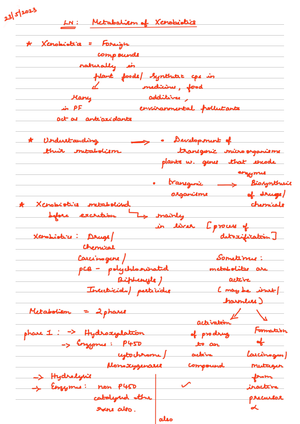 23/5/2023
LN: Metabolism of Xenobiotics
* Xenobiotics = Foreign
compounds
naturally in
plant foods/ Synthetic cps in
Many medicine, food
additives,
in PF environmental pollutants
act as antioxidants
* Understanding → • Development of
their metabolism transgenic microorganisms
plants w. genes that encode
enzymes
• transgenic → Biosynthesis
organisms of drugs/
chemicals
* Xenobiotics metabolised
before excretion → mainly
in liver [process of
detoxification]
Xenobiotics: Drugs/
Chemical
Carcinogens/ Sometimes:
PCB - polychlorinated metabolites are
Biphenyls/ active
Insecticides/ pesticides (may be inert/
harmless)
Metabolism = 2 phase
activation Formation
phase I: → Hydroxylation of prodrug of
→ Enzymes: P450 to an
cytochrome/ active Carcinogen/
Monoxygenases compound mutagen
from
→ Hydrolysis inactive
→ Enzymes: non P450 ✓ precursor
catalysed
also